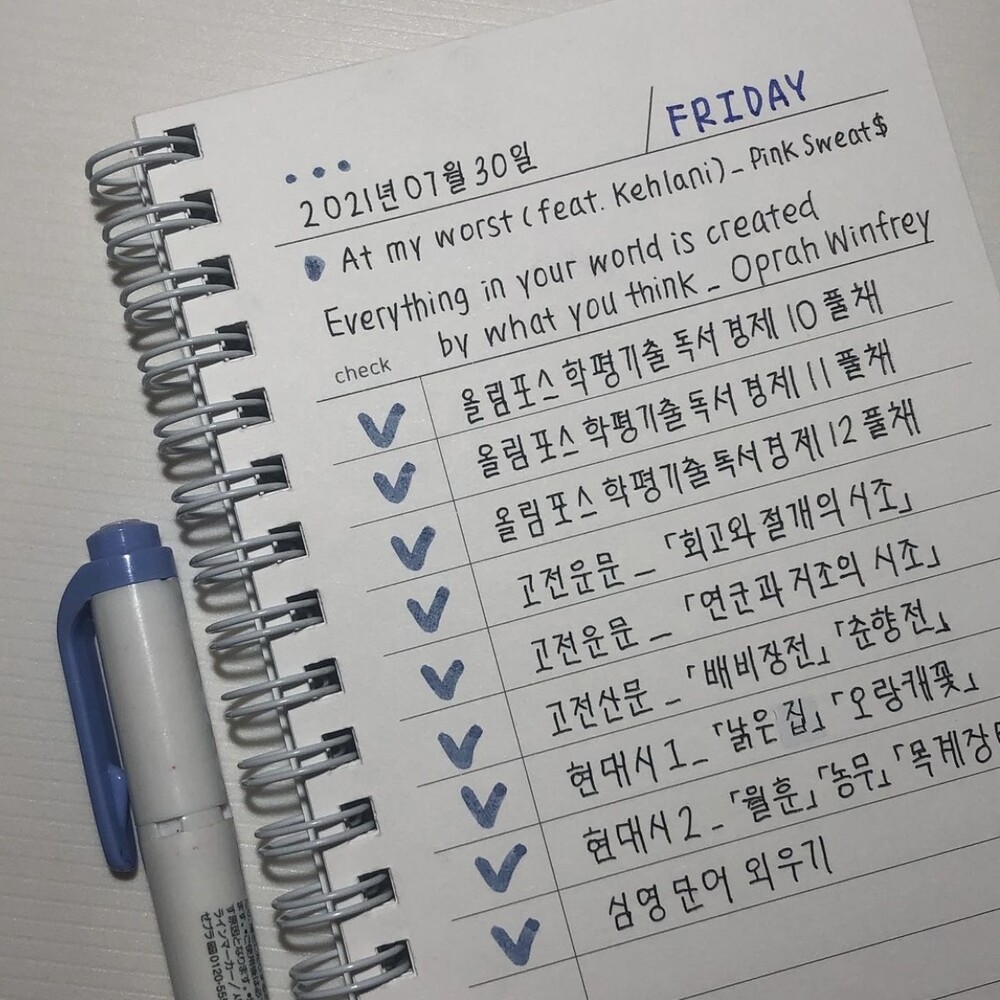 2021년 07월 30일 / FRIDAY
At my worst (feat. Kehlani)_ Pink Sweat$
Everything in your world is created
by what you think _ Oprah Winfrey
check
올림포스 학평기출 독서 경제 10 풀채
올림포스 학평기출 독서 경제 11 풀채
올림포스 학평기출 독서 경제 12 풀채
고전운문 _ 「회고와 절개의 시조」
고전운문 _ 「연군과 지조의 시조」
고전산문 _ 「배비장전」 「춘향전」
현대시 1 _ 「낡은 집」 「오랑캐꽃」
현대시 2 _ 「월훈」 「농무」 「목계장
심영단어 외우기
ラインマーカー／
ゼブラ 0120-555